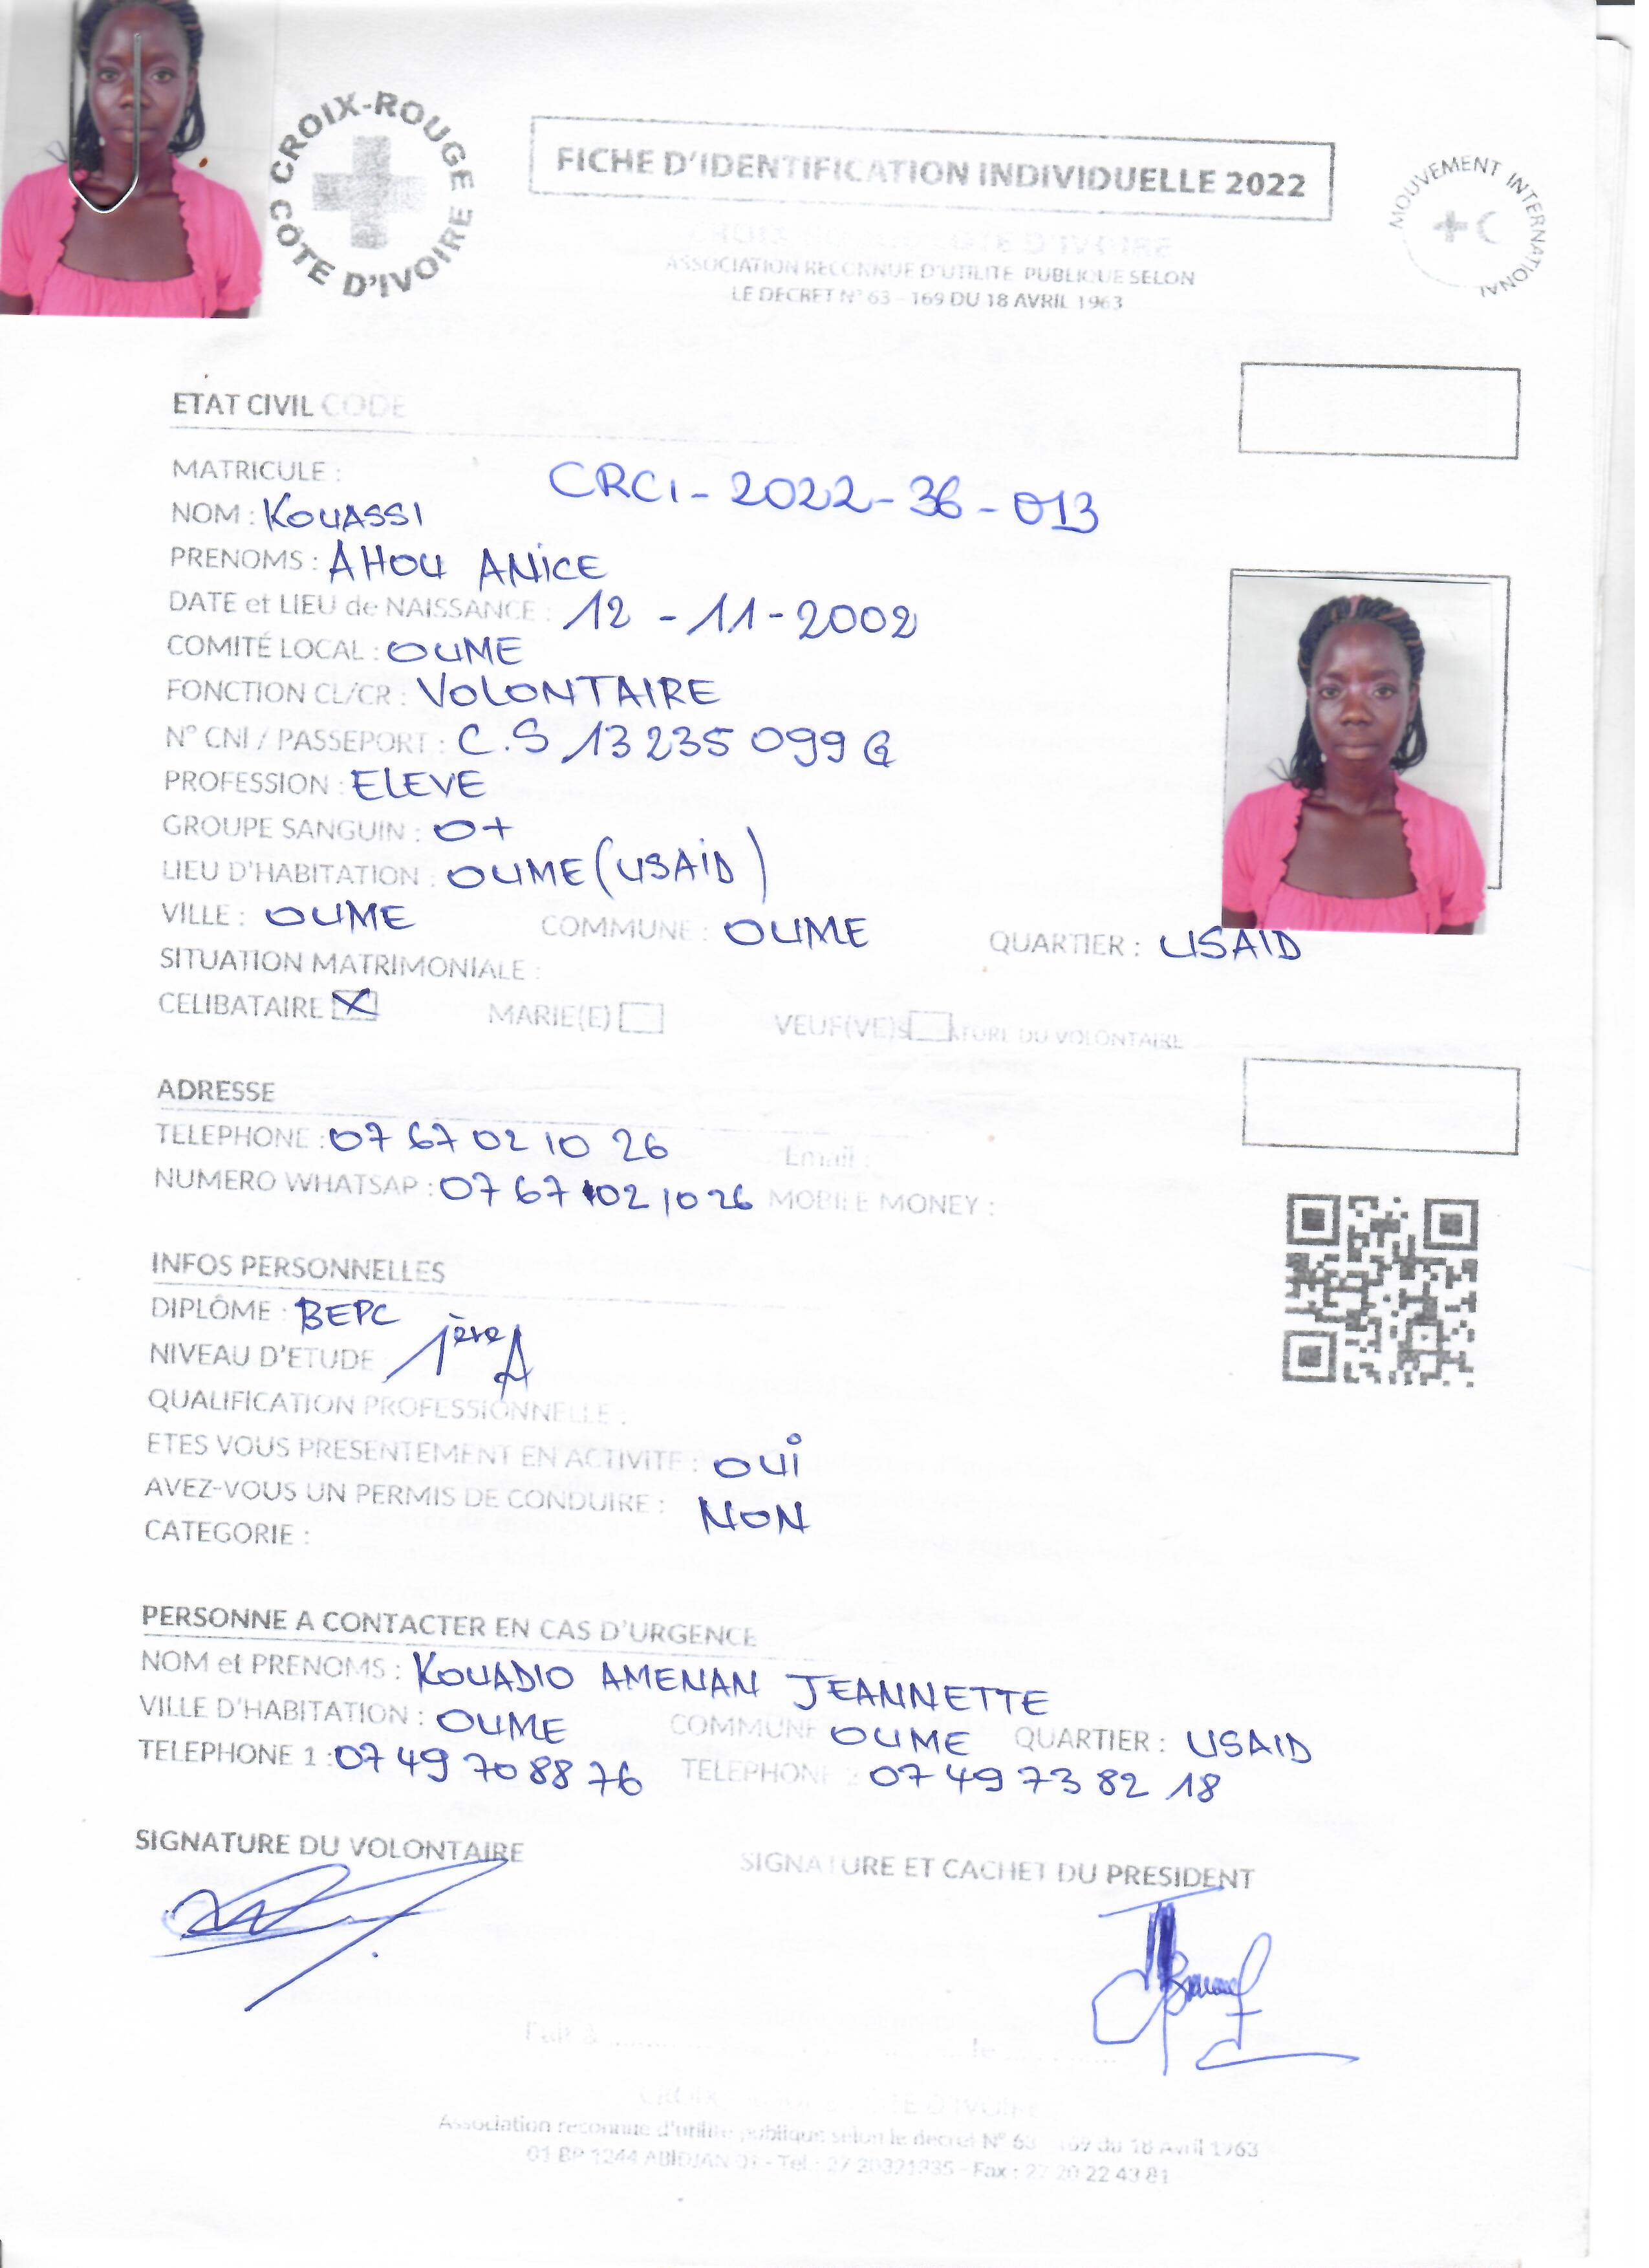 CROIX-ROUGE CÔTE D'IVOIRE
FICHE D'IDENTIFICATION INDIVIDUELLE 2022
MOUVEMENT INTERNATIONAL
CROIX CÔTE D'IVOIRE
ASSOCIATION RECONNUE D'UTILITE PUBLIQUE SELON
LE DECRET N° 63 - 169 DU 18 AVRIL 1963
ETAT CIVIL CODE
MATRICULE : CRCI-2022-36-013
NOM : KOUASSI
PRENOMS : AHOU ANICE
DATE et LIEU de NAISSANCE : 12 - 11 - 2002
COMITÉ LOCAL : OUME
FONCTION CL/CR : VOLONTAIRE
N° CNI / PASSEPORT : C.S 13 235 099 G
PROFESSION : ELEVE
GROUPE SANGUIN : O+
LIEU D'HABITATION : OUME (USAID)
VILLE : OUME COMMUNE : OUME QUARTIER : USAID
SITUATION MATRIMONIALE :
CELIBATAIRE X MARIE(E) VEUF(VE) DU VOLONTAIRE
ADRESSE
TELEPHONE : 07 67 02 10 26 Email :
NUMERO WHATSAP : 07 67 02 10 26 MOBILE MONEY :
INFOS PERSONNELLES
DIPLÔME : BEPC
NIVEAU D'ETUDE 1ère A
QUALIFICATION PROFESSIONNELLE :
ETES VOUS PRESENTEMENT EN ACTIVITE : OUI
AVEZ-VOUS UN PERMIS DE CONDUIRE : NON
CATEGORIE :
PERSONNE A CONTACTER EN CAS D'URGENCE
NOM et PRENOMS : KOUADIO AMENAN JEANNETTE
VILLE D'HABITATION : OUME COMMUNE OUME QUARTIER : USAID
TELEPHONE 1 : 07 49 70 88 76 TELEPHONE 2 : 07 49 73 82 18
SIGNATURE DU VOLONTAIRE SIGNATURE ET CACHET DU PRESIDENT
Fait à .................... le ....................
CROIX D'IVOIRE
Association reconnue d'utilité publique selon le decret N° 63 169 du 18 Avril 1963
01 BP 1244 ABIDJAN 01 - Tel : 27 20321335 - Fax : 27 20 22 43 81